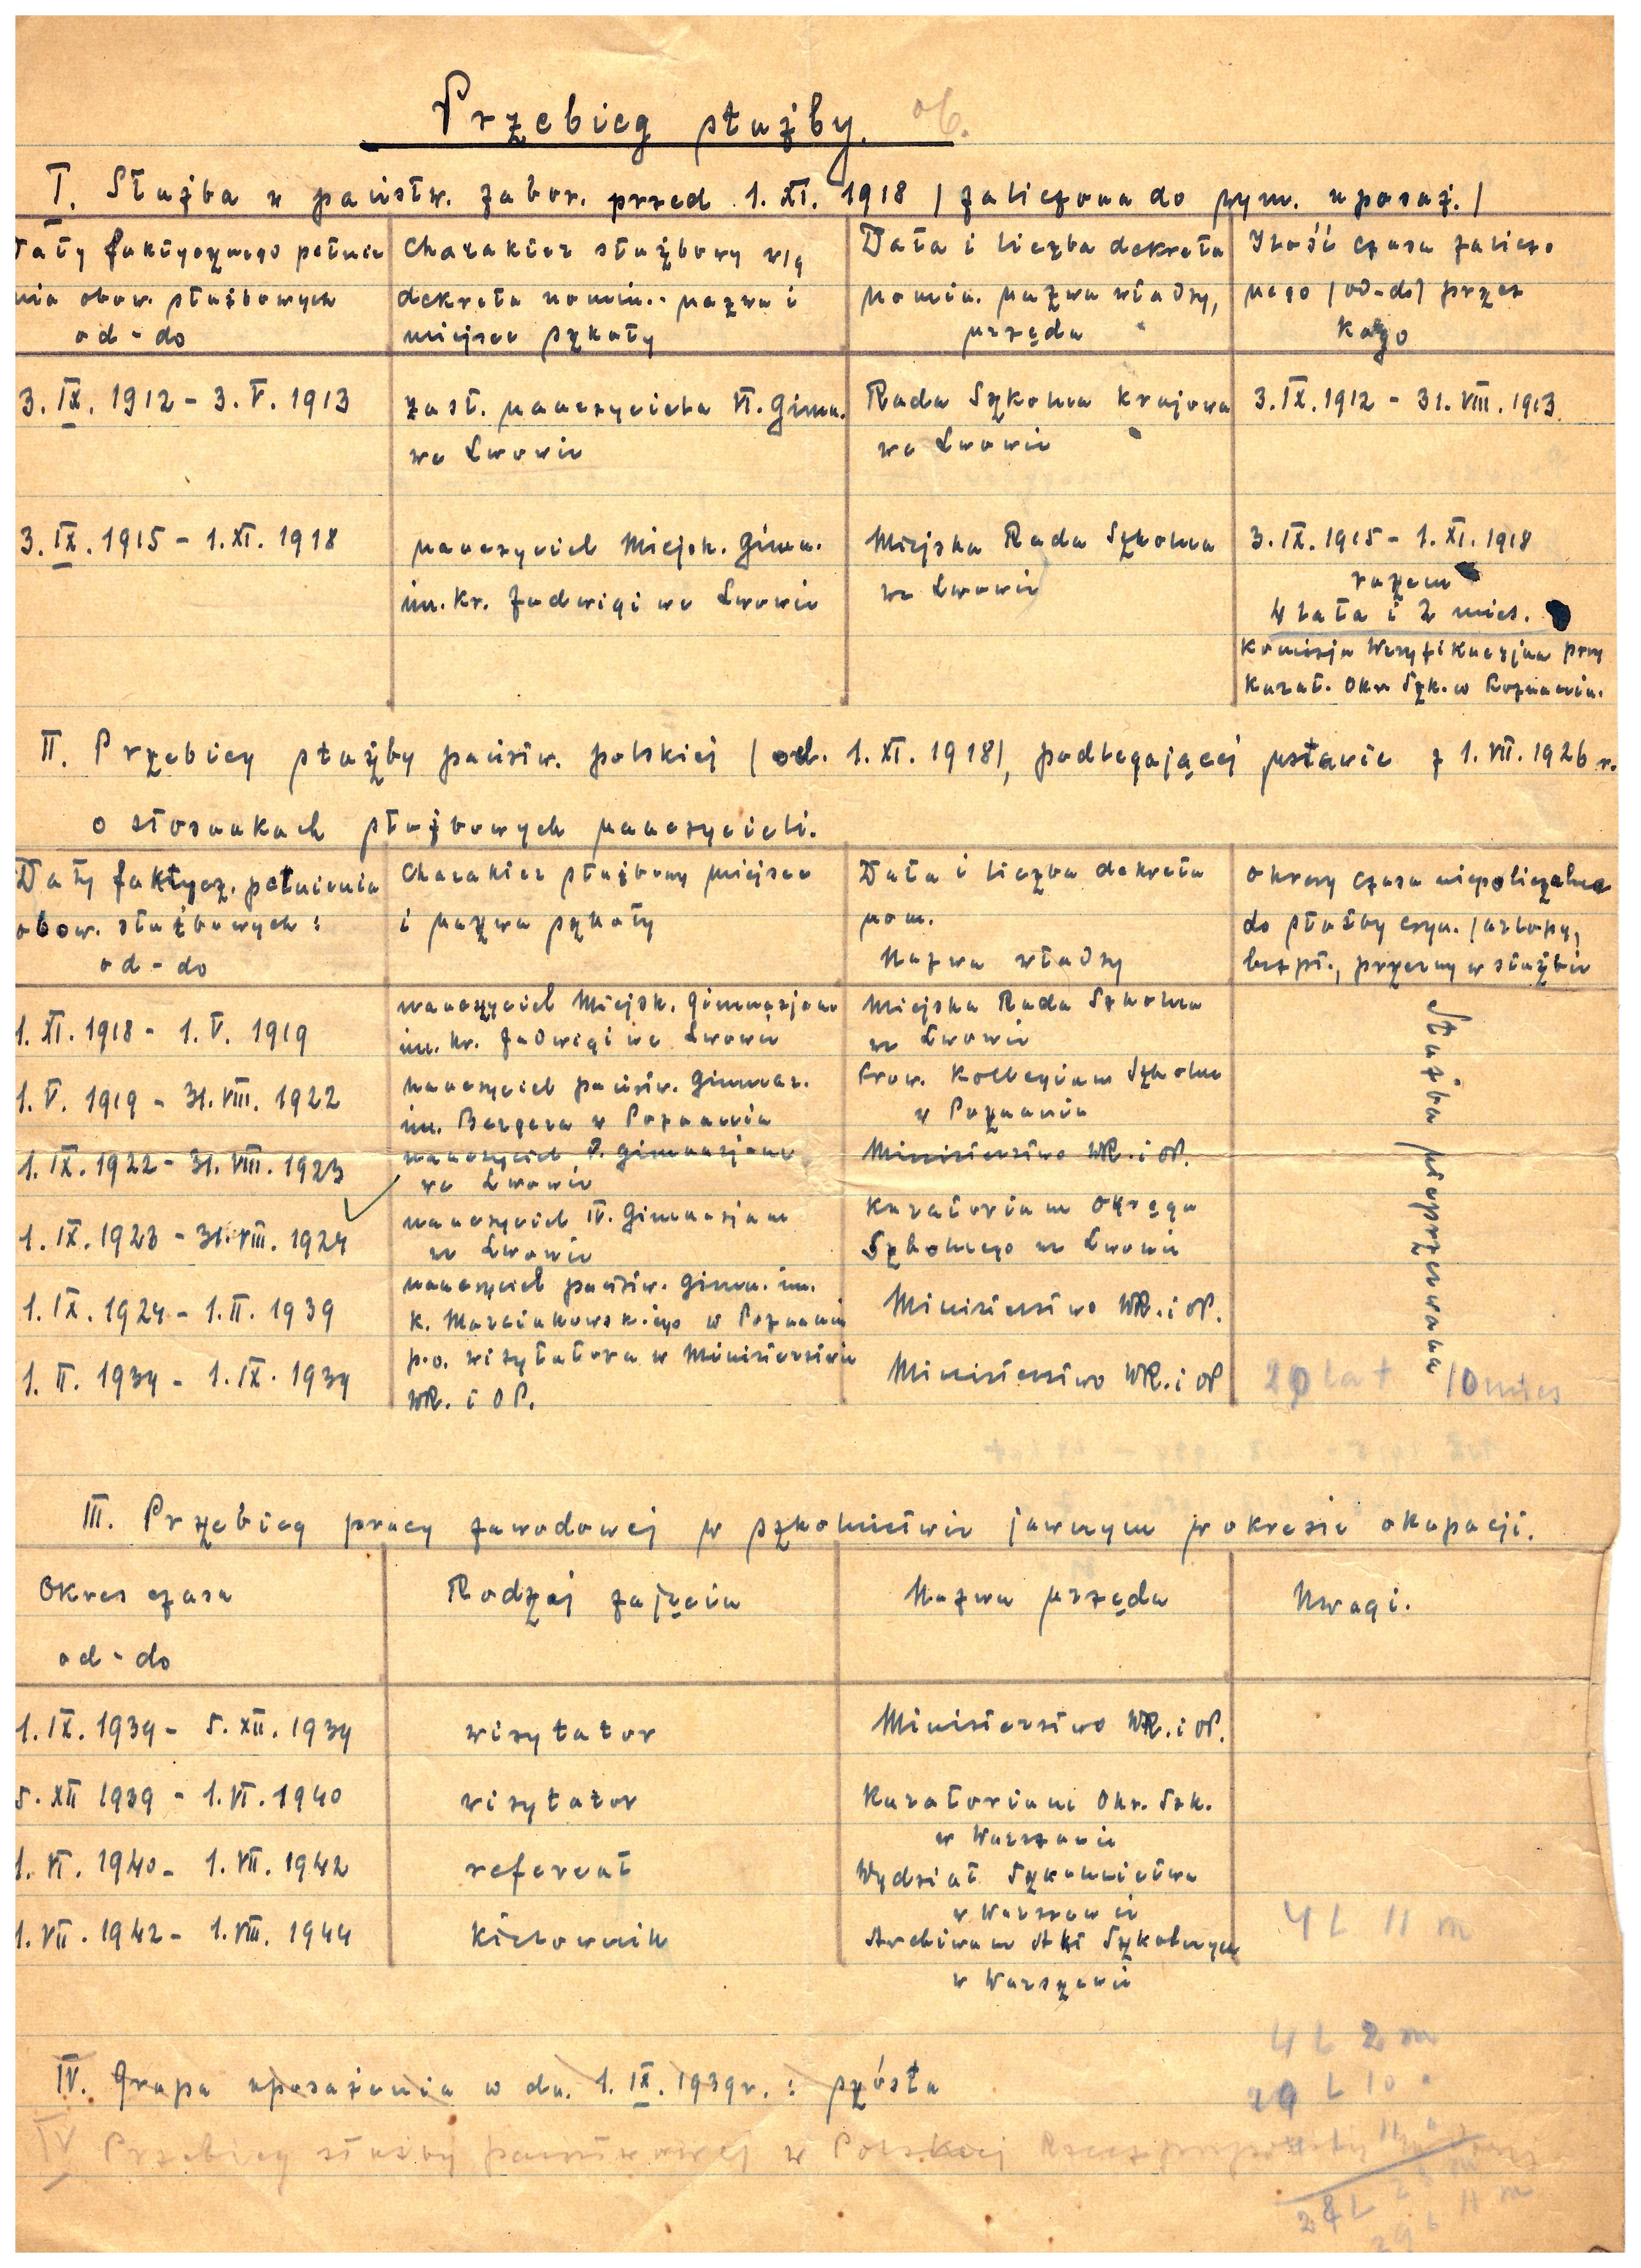 Przebieg służby.
I. Służba w państw. zabor. przed 1. XI. 1918 / zaliczona do wym. uposaż. /
Daty faktycznego pełnie
nia obow. służbowych
od - do
Charakter służbowy wg
dekretu nomin.- nazwa i
miejsce szkoły
Data i liczba dekretu
nomin. nazwa władzy,
urzędu
Ilość czasu zaliczo
nego / od-do / przez
kogo
3. IX. 1912 - 3. V. 1913
zast. nauczyciela VI. Gimn.
we Lwowie
Rada Szkolna Krajowa
we Lwowie
3. IX. 1912 - 31. VIII. 1913
3. IX. 1915 - 1. XI. 1918
nauczyciel Miejsk. Gimn.
im. Kr. Jadwigi we Lwowie
Miejska Rada Szkolna
we Lwowie
3. IX. 1915 - 1. XI. 1918
razem
4 lata i 2 mies.
Komisja Weryfikacyjna przy
Kurat. Okr. Szk. w Poznaniu.
II. Przebieg służby państw. polskiej / od. 1. XI. 1918/, podlegającej ustawie z 1. VII. 1926 r.
o stosunkach służbowych nauczycieli.
Daty faktycz. pełnienia
obow. służbowych :
od - do
Charakter służbowy miejsce
i nazwa szkoły
Data i liczba dekretu
nom.
Nazwa władzy
Okresy czasu niepoliczalne
do służby czyn. / urlopy,
bezpł., przerwy w służbie
1. XI. 1918 - 1. V. 1919
nauczyciel Miejsk. Gimnazjum
im. Kr. Jadwigi we Lwowie
Miejska Rada Szkolna
we Lwowie
1. V. 1919 - 31. VIII. 1922
nauczyciel państw. Gimnaz.
im. Bergera w Poznaniu
Prow. Kollegium Szkolne
w Poznaniu
1. IX. 1922 - 31. VIII. 1923
nauczyciel Gimnazjum
we Lwowie
Ministerstwo WR. i OP.
1. IX. 1923 - 31. VIII. 1924
nauczyciel IV. Gimnazjum
we Lwowie
Kuratorium Okręgu
Szkolnego we Lwowie
1. IX. 1924 - 1. II. 1939
nauczyciel państw. Gimn. im.
K. Marcinkowskiego w Poznaniu
Ministerstwo WR. i OP.
1. II. 1939 - 1. IX. 1939
p.o. wizytatora w Ministerstwie
WR. i OP.
Ministerstwo WR. i OP
Służba nieprzerwana
20 lat 10 mies
III. Przebieg pracy zawodowej w szkolnictwie jawnym w okresie okupacji.
Okres czasu
od - do
Rodzaj zajęcia
Nazwa urzędu
Uwagi.
1. IX. 1939 - 5. XII. 1939
wizytator
Ministerstwo WR. i OP.
5. XII 1939 - 1. VI. 1940
wizytator
Kuratorium Okr. Szk.
w Warszawie
1. VI. 1940 - 1. VII. 1942
referent
Wydział Szkolnictwa
w Warszawie
1. VII. 1942 - 1. VIII. 1944
Kierownik
Archiwum Akt Szkolnych
w Warszawie
4 L 11 m
4 L 2 m
IV. Grupa uposażenia w dn. 1. IX. 1939 r. : szósta
IV Przebieg służby państwowej w Polskiej Rzeczpospolitej